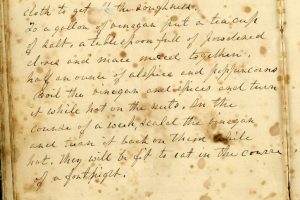 cloth to get off the roughness.
To a gallon of vinegar put a tea cup
of salt, a tablespoon full of powdered
clovs and mace mixed together.
half an ounce of allspice and peppercorns
Boil the vinegar and spices and turn
it while hot on the nuts. In the
course of a week, scald the vinegar
and turn it back on them while
hot. They will be fit to eat in the course
of a fortnight.